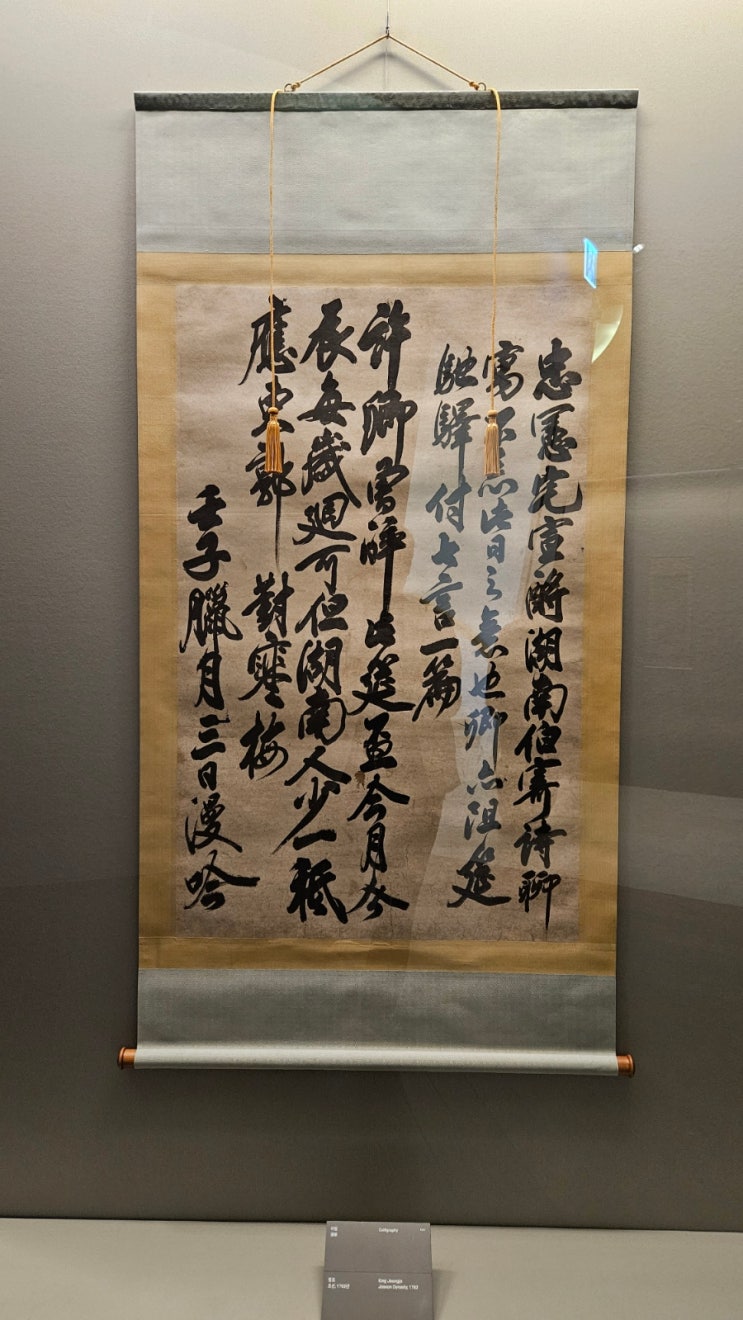 忠憲先宣湖南伯寄詩聊
寓不忘此日之意也卿亦沮筵
馳驛付七言一篇
許卿曾醉此筵盃今月今
辰每歲廻可但湖南人少一秪
應東郭對寒梅
壬子臘月三日漫吟
Calligraphy
King Jeongjo
Joseon Dynasty, 1792